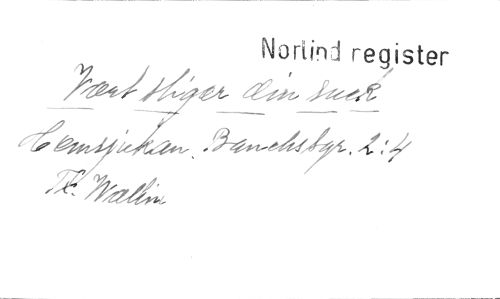 Norlind register
Vart stiger din suck
Hemsjukan. Bancksbgr. 2:4
Th. Wallin